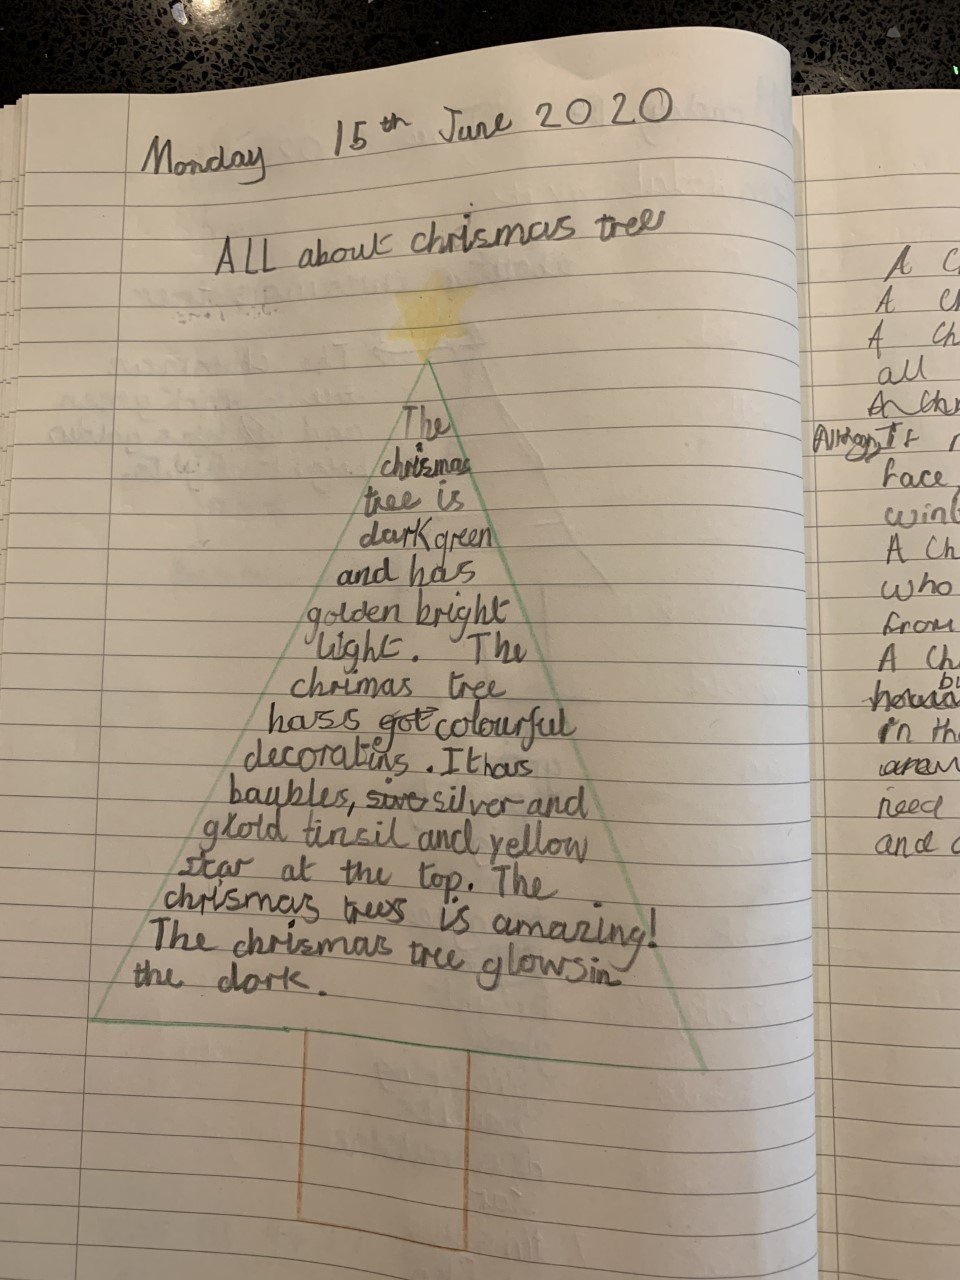 Monday 15th June 2020
ALL about chrismas tree
The
chrismas
tree is
dark green
and has
golden bright
light. The
chrimas tree
hass got colourful
decoratins. It has
baubles, silver and
gold tinsil and yellow
star at the top. The
chrismas trees is amazing!
The chrismas tree glows in
the dark.
A
A
A Ch
all
A Chr
It
face
A Ch
who
from
A Ch
in the
need
and